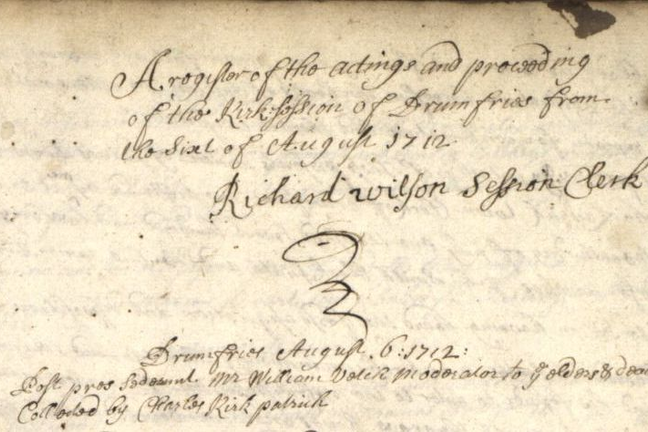 A register of the actings and proceeding
of the Kirk:session of Drumfries from
the Sixt of August 1712
Richard Wilson Session Clerk
Drumfries August 6:1712:
Post preces Sederunt Mr William Veitch moderator to ye elders &
Collected by Charles Kirkpatrick